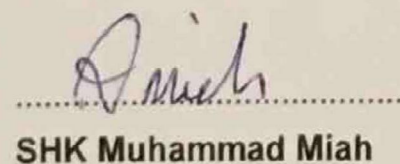 SHK Muhammad Miah